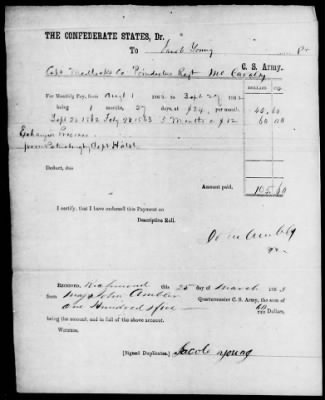 THE CONFEDERATE STATES, Dr.
To Jacob Young Pr
C. S. Army.
Capt Co. Poindexter Regt Mo Cavalry
DOLLARS CTS.
For Monthly Pay, from Augt 1 186 2 to Sept 27 186 2
being 1 months 27 days at $24, per month, 45.60
Sept 28 1862 Feby 28 1863 5 Months @ $12 60.00
Exchanged Prisoner
from Petersburg Hospt
Deduct, due
Amount paid, 105.60
I certify, that I have endorsed this Payment on
Descriptive Roll.
RECEIVED, Richmond this 25 day of March 186 3
from Maj John Ambler Quartermaster C. S. Army, the sum of
One Hundred & five 60/100 Dollars,
being the amount, and in full of the above account.
WITNESS.
[Signed Duplicates.] Jacob Young